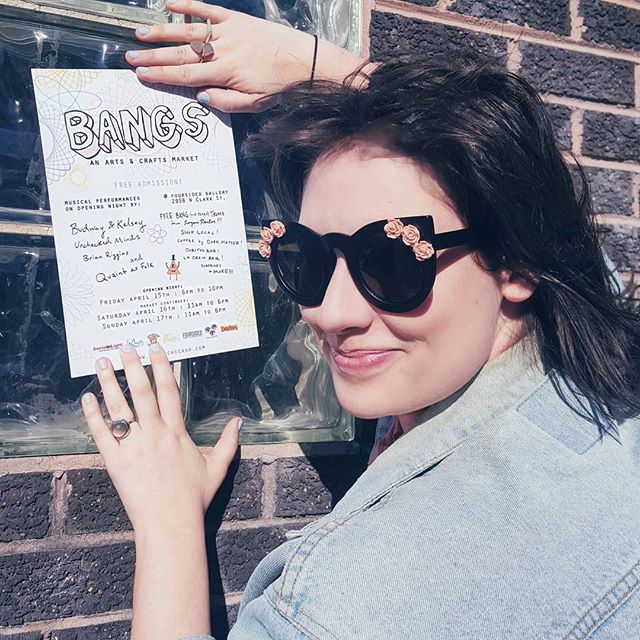 BANGS
AN ARTS & CRAFTS MARKET
FREE ADMISSION!
MUSICAL PERFORMANCES
ON OPENING NIGHT BY:
Budway & Kelsey
Unchecked Minds
Brian Riggins
and
Quaint as Folk
@ FOURSIDED GALLERY
2958 N CLARK ST.
FREE BANG TRIMS
SHOP LOCAL!
COFFEE BY DARK MATTER!
LA CROIX BAR!
+ MORE!!!
OPENING NIGHT:
FRIDAY APRIL 15TH : 6PM TO 10PM
MARKET CONTINUES:
SATURDAY APRIL 16TH : 11AM TO 6PM
SUNDAY APRIL 17TH : 11AM TO 6PM
FOURSIDED
CHICAGO.COM